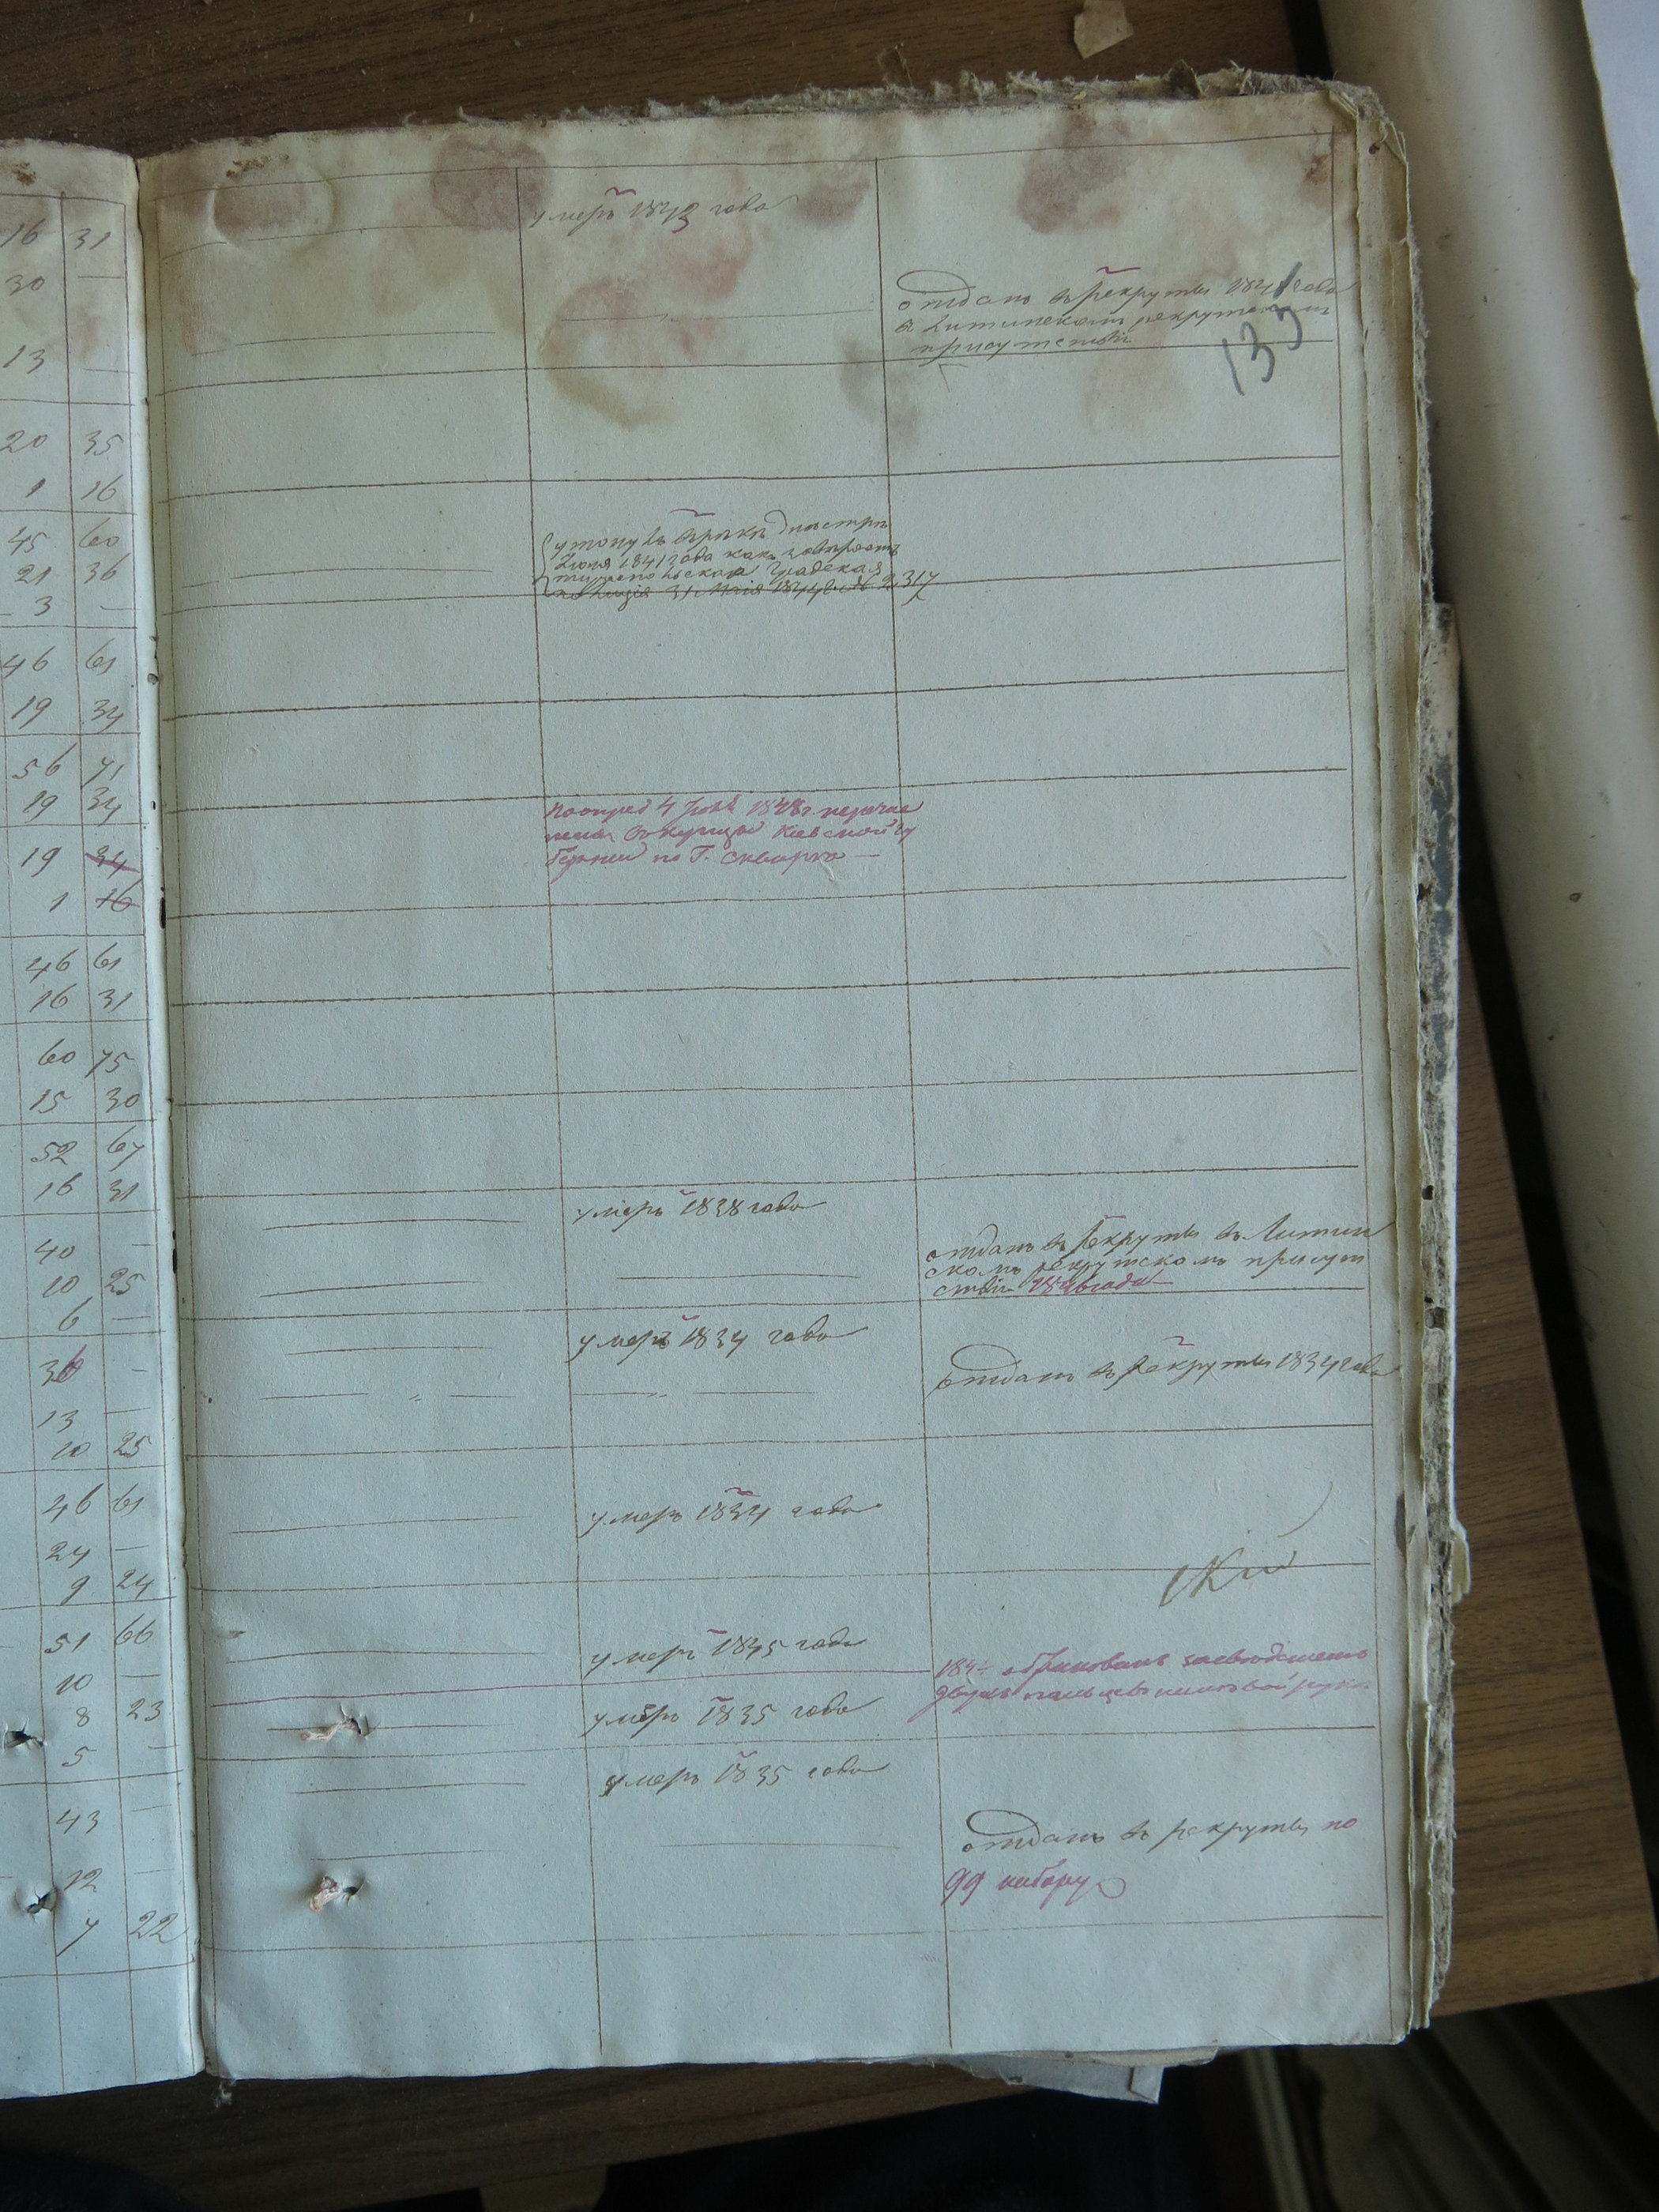 16 31
30 —
13 —
20 35
1 16
45 60
21 36
3 —
46 61
19 34
56 71
19 34
19 34
1 16
46 61
16 31
60 75
15 30
52 67
16 31
40 —
10 25
6 —
36 —
13 —
10 25
46 61
24 —
9 24
51 66
10 —
8 23
5 —
43 —
12 —
7 22
умеръ 1843 года
отданъ въ рекруты 1841 года
в Литинскомъ рекрутскомъ
присутствіи
133
утонувъ въ рѣкѣ Днестрѣ
Іюля 1841 года какъ
Градская
полиція 31 Маія 1844 № 2317
4 1848 г. перечис
ленъ въ купцы Кіевской гу
берніи по Г. Сквирѣ —
умеръ 1838 года
отданъ въ рекруты въ Литин
скомъ рекрутскомъ присут
ствіи года
умеръ 1834 года
отданъ въ рекруты 1834 года
умеръ 1834 года
кій
умеръ 1845 года
184
двухъ пальцевъ на лѣвой руки
умеръ 1835 года
умеръ 1835 года
отданъ въ рекруты по
99 набору